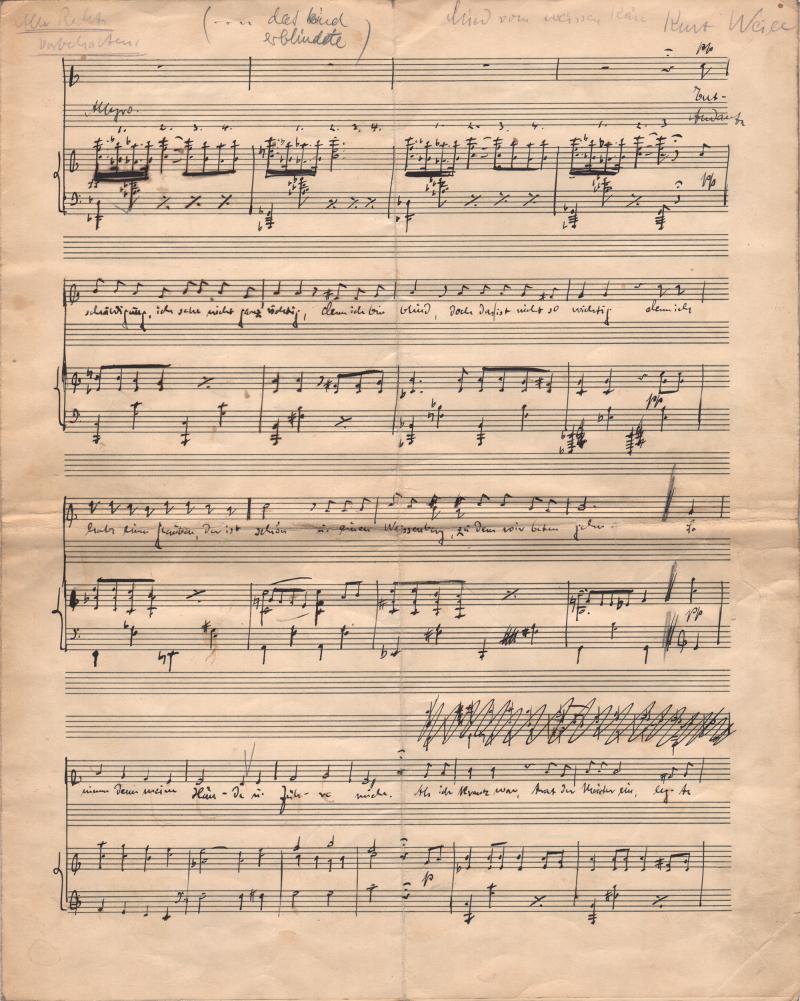 Alle Rechte
vorbehalten.
(... das Kind
erblindete)
Lied vom weissen Käse Kurt Weill
pp
Ent-
Allegro. Andante
1. 2. 3. 4. 1. 2. 3. 4. 1. 2. 3. 4. 1. 2. 3
pp
schuldigung, ich sehe nicht ganz richtig, denn ich bin blind, doch das ist nicht so wichtig denn ich
pp
habe einen Glauben, der ist schön u. einen Weissenberg, zu dem wir beten gehn. So
pp
nimm denn meine Hän-de u. füh-re mich. Als ich krank war, trat der Meister ein, leg-te
p